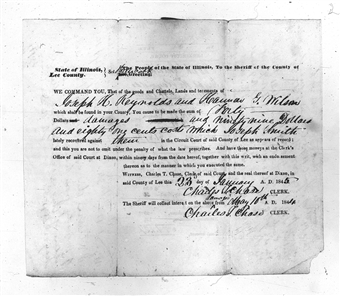 2
State of Illinois,
Lee County.
The People of the State of Illinois, To the Sheriff of the County of
Greeting:
WE COMMAND YOU, That of the goods and Chattels, Lands and tenements of
Joseph H. Reynolds and Harmon T. Wilson
which shall be found in your County, you cause to be made the sum of Forty
Dollars damages and ninety nine Dollars
and eighty cents costs which Joseph Smith
lately recovered against them in the Circuit Court of said County of Lee as appears of record:
and this you are not to omit under the penalty of what the law prescribes. And have those moneys at the Clerk's
Office of said Court at Dixon, within ninety days from the date hereof, together with this writ, with an endorsement
thereon as to the manner in which you executed the same.
WITNESS, Charles T. Chase, Clerk of said Court, and the seal thereof at Dixon,
in said County of Lee this 23 day of January A. D. 184
Charles T. Chase CLERK.
The Sheriff will collect interest on the above from May 10th A. D. 1844
Charles T. Chase CLERK.